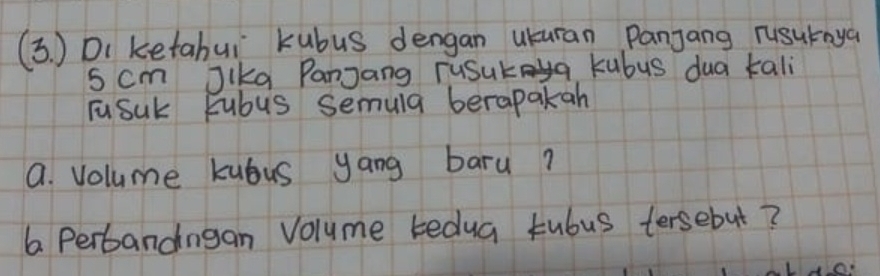 (3.) Di ketahui kubus dengan ukuran panjang rusuknya
5 cm Jika Panjang rusuknya kubus dua kali
rusuk kubus semula berapakah
a. Volume kubus yang baru ?
b Perbandingan Volume kedua kubus tersebut ?